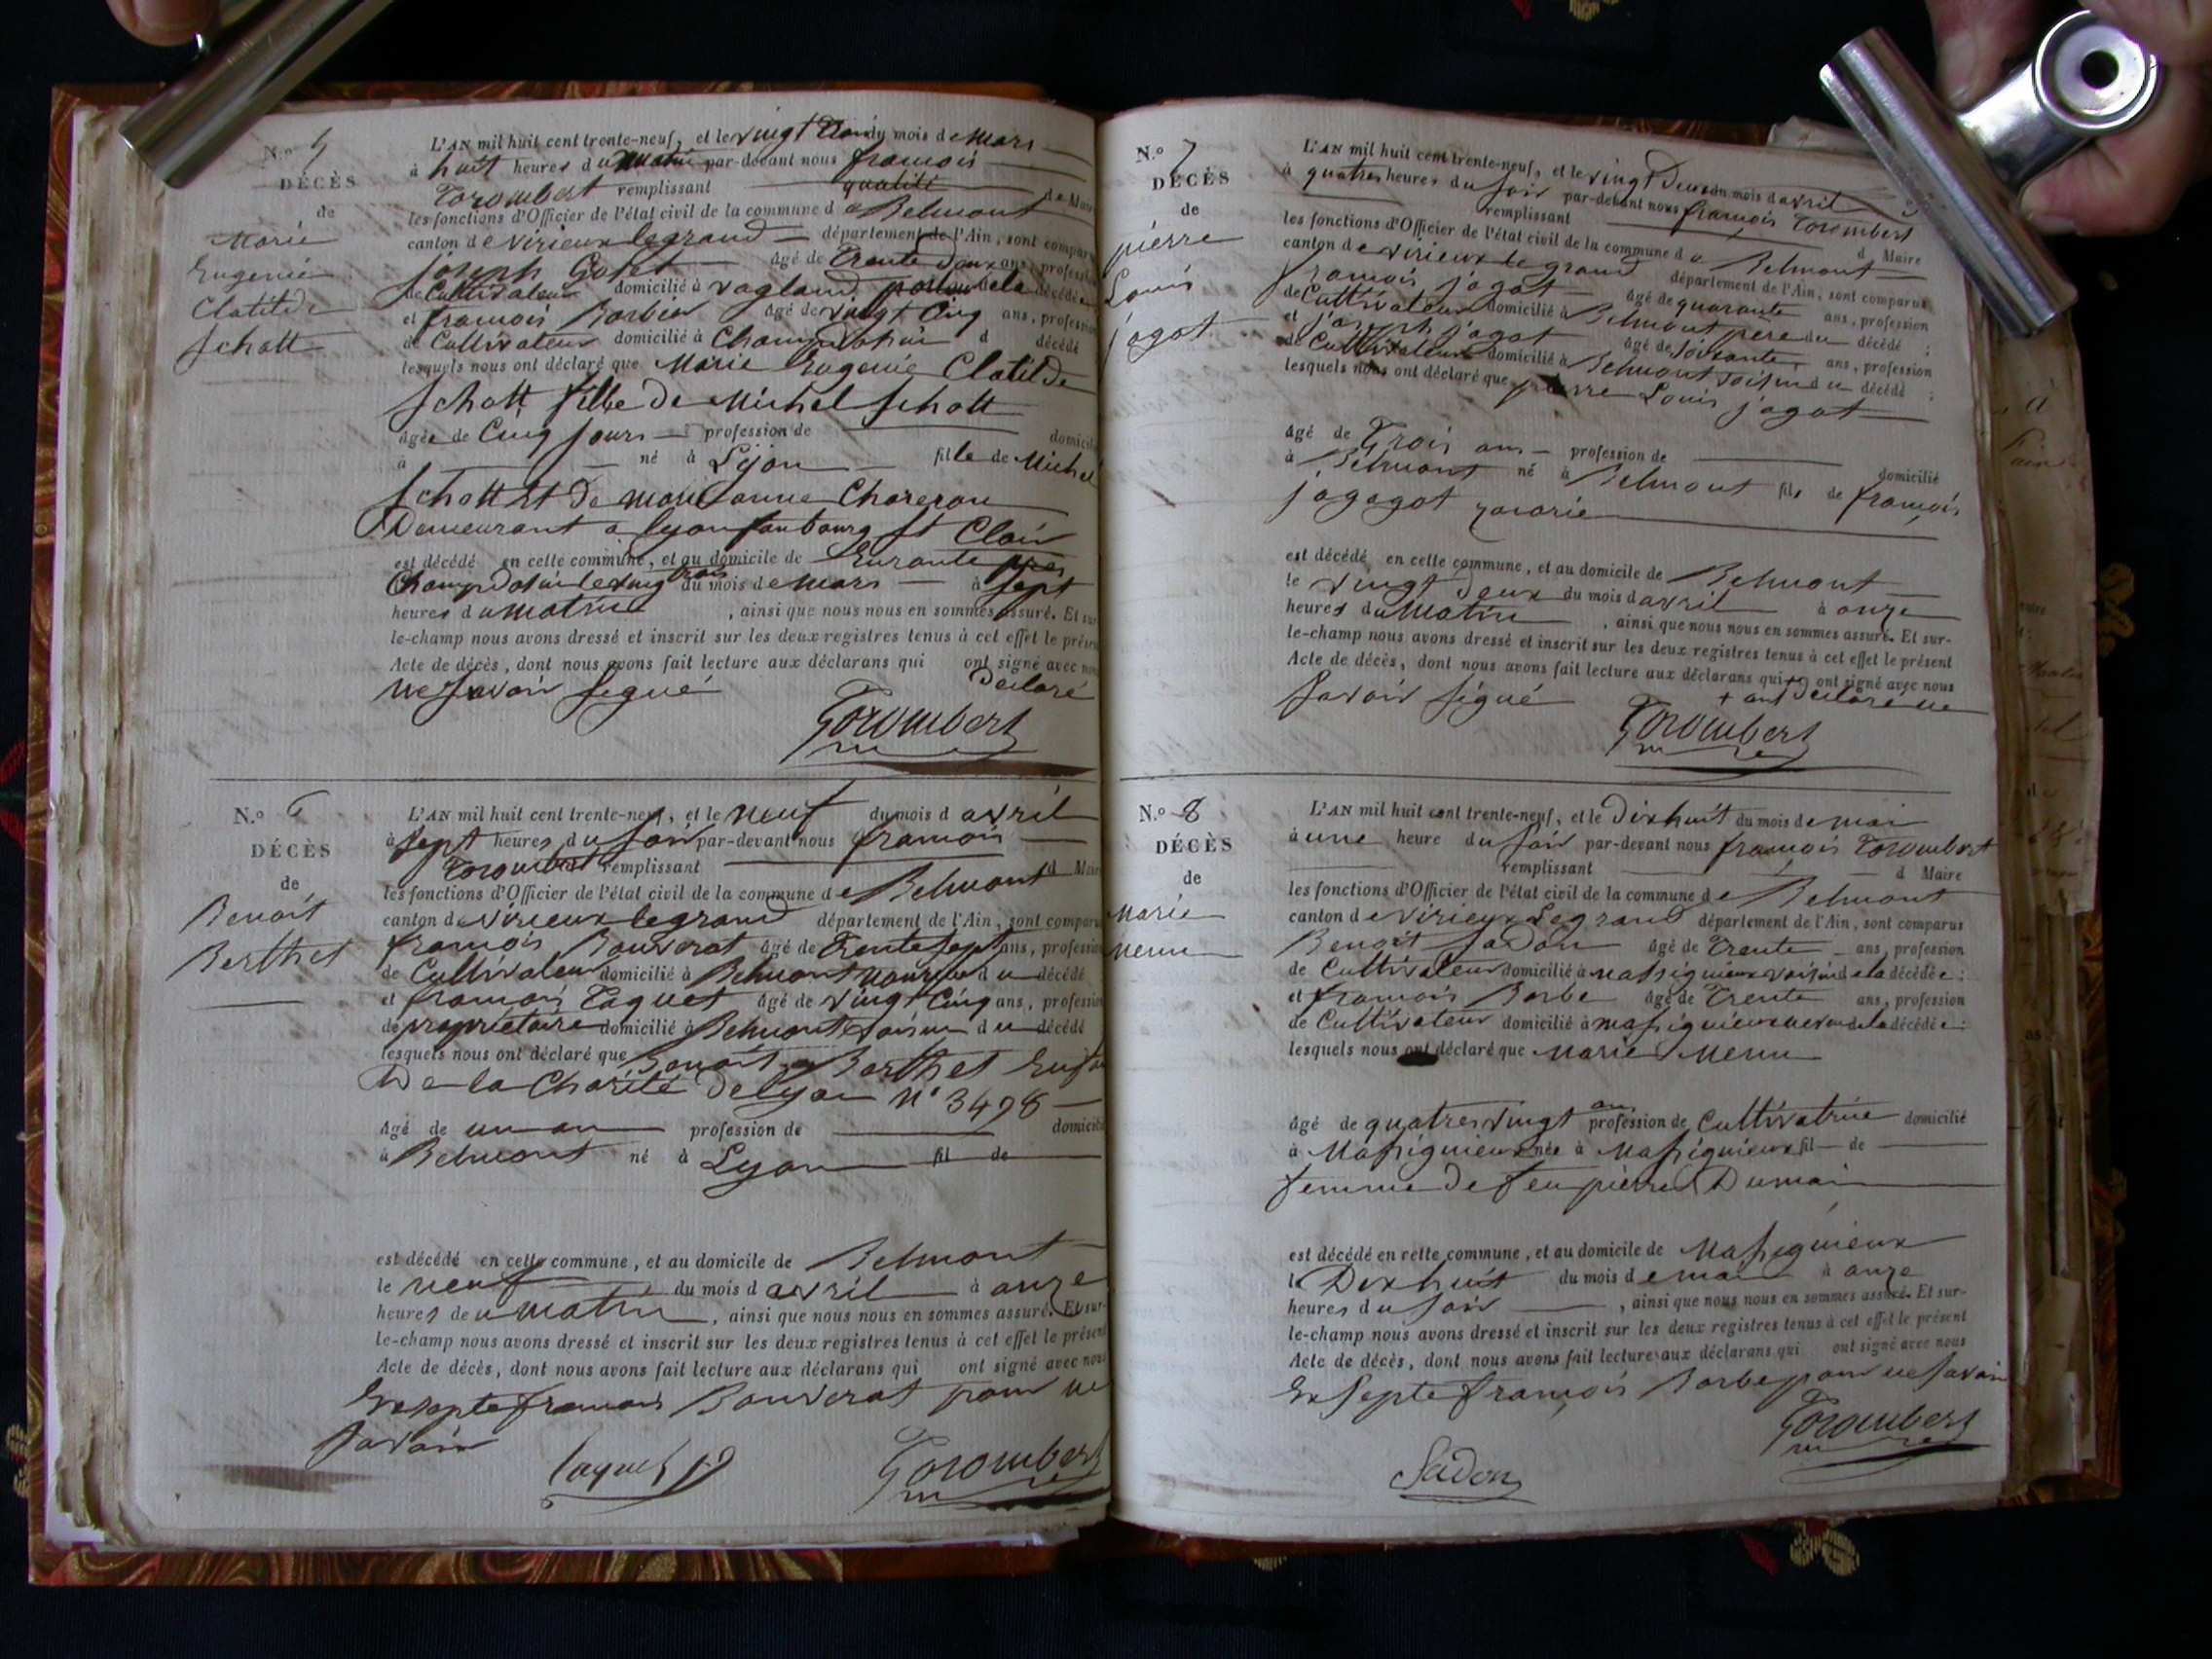 N.o 5
DÉCÈS
de
Marie
Eugenie
Clotilde
Schott
L'AN mil huit cent trente-neuf, et le vingt trois du mois de Mars
à huit heures du matin par-devant nous françois
Torombert remplissant qualité de Maire
les fonctions d'Officier de l'état civil de la commune de Belmont
canton de virieux legrand département de l'Ain, sont comparus
joseph Golet âgé de Trente Deux ans, profession
de Cultivateur domicilié à vogland de la décédée
et françois Borbin âgé de vingt Cinq ans, profession
de Cultivateur domicilié à d décédé
lesquels nous ont déclaré que Marie Eugenie Clotilde
Schott fille De Michel Schott
âgée de Cinq jours profession de domicilié
à né à Lyon fille de Michel
Schott Et De anne
Demeurant a lyon faubourg St Clair
est décédé en cette commune, et au domicile de
le vingt trois du mois de Mars à sept
heures du matin , ainsi que nous nous en sommes assuré. Et sur-
le-champ nous avons dressé et inscrit sur les deux registres tenus à cet effet le présent
Acte de décès, dont nous avons fait lecture aux déclarans qui ont signé avec nous
Declaré
ne savoir signé
Torombert
N.o 6
DÉCÈS
de
Benoit
Berthet
L'AN mil huit cent trente-neuf, et le neuf du mois d avril
à sept heures du soir par-devant nous françois
Torombert remplissant d Maire
les fonctions d'Officier de l'état civil de la commune de Belmont
canton de virieux legrand département de l'Ain, sont comparus
françois Bouverat âgé de Trente sept ans, profession
de Cultivateur domicilié à Belmont du décédé
et françois Taquet âgé de vingt Cinq ans, profession
de proprietaire domicilié à Belmont voisin du décédé
lesquels nous ont déclaré que Benoit Berthet
De la Charité De lyon N° 3498
âgé de un an profession de domicilié
à Belmont né à Lyon fil de
est décédé en cette commune, et au domicile de Belmont
le neuf du mois d avril à onze
heures de u matin , ainsi que nous nous en sommes assuré. Et sur-
le-champ nous avons dressé et inscrit sur les deux registres tenus à cet effet le présent
Acte de décès, dont nous avons fait lecture aux déclarans qui ont signé avec nous
Exsepte françois Bouverat pour ne
savoir
Taquet
Torombert
N.o 7
DÉCÈS
de
pierre
Louis
jagot
L'AN mil huit cent trente-neuf, et le vingt Deux du mois d avril
à quatres heures du soir par-devant nous françois Torombert
remplissant d Maire
les fonctions d'Officier de l'état civil de la commune de Belmont
canton de virieux le grand département de l'Ain, sont comparus
françois jagot âgé de quarante ans, profession
de Cultivateur domicilié à Belmont père du décédé ;
et joseph jagot âgé de soixante ans, profession
de Cultivateur domicilié à Belmont voisin du décédé ;
lesquels nous ont déclaré que pierre Louis jagot
âgé de Trois ans profession de domicilié
à Belmont né à Belmont fils de françois
jagagot
est décédé en cette commune, et au domicile de Belmont
le vingt deux du mois d avril à onze
heures du Matin , ainsi que nous nous en sommes assuré. Et sur-
le-champ nous avons dressé et inscrit sur les deux registres tenus à cet effet le présent
Acte de décès, dont nous avons fait lecture aux déclarans qui + ont signé avec nous
+ ont Declaré ne
savoir signé
Torombert
N.o 8
DÉCÈS
de
Marie
Menu
L'AN mil huit cent trente-neuf, et le Dixhuit du mois de mai
à une heure du soir par-devant nous françois Torombert
remplissant d Maire
les fonctions d'Officier de l'état civil de la commune de Belmont
canton de virieux Legrand département de l'Ain, sont comparus
Benoit Sadon âgé de Trente ans, profession
de Cultivateur domicilié à massignieux voisin de la décédée ;
et françois Borbe âgé de Trente ans, profession
de Cultivateur domicilié à massignieux de la décédée ;
lesquels nous ont déclaré que Marie Menu
âgé de quatres vingt an profession de Cultivatrice domicilié
à Massignieux née à Massignieux fil de
femme De feu pierre Dumai
est décédé en cette commune, et au domicile de Massignieux
le Dixhuit du mois de mai à onze
heures du soir , ainsi que nous nous en sommes assuré. Et sur-
le-champ nous avons dressé et inscrit sur les deux registres tenus à cet effet le présent
Acte de décès, dont nous avons fait lecture aux déclarans qui ont signé avec nous
Exsepte françois Borbe pour ne savoir
Torombert
Sadon